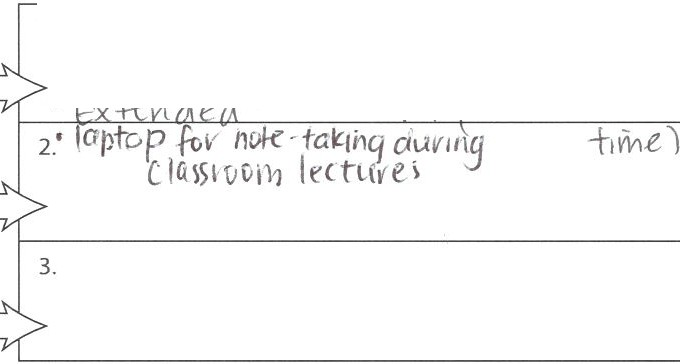 Extended
2. • laptop for note-taking during time)
classroom lectures
3.